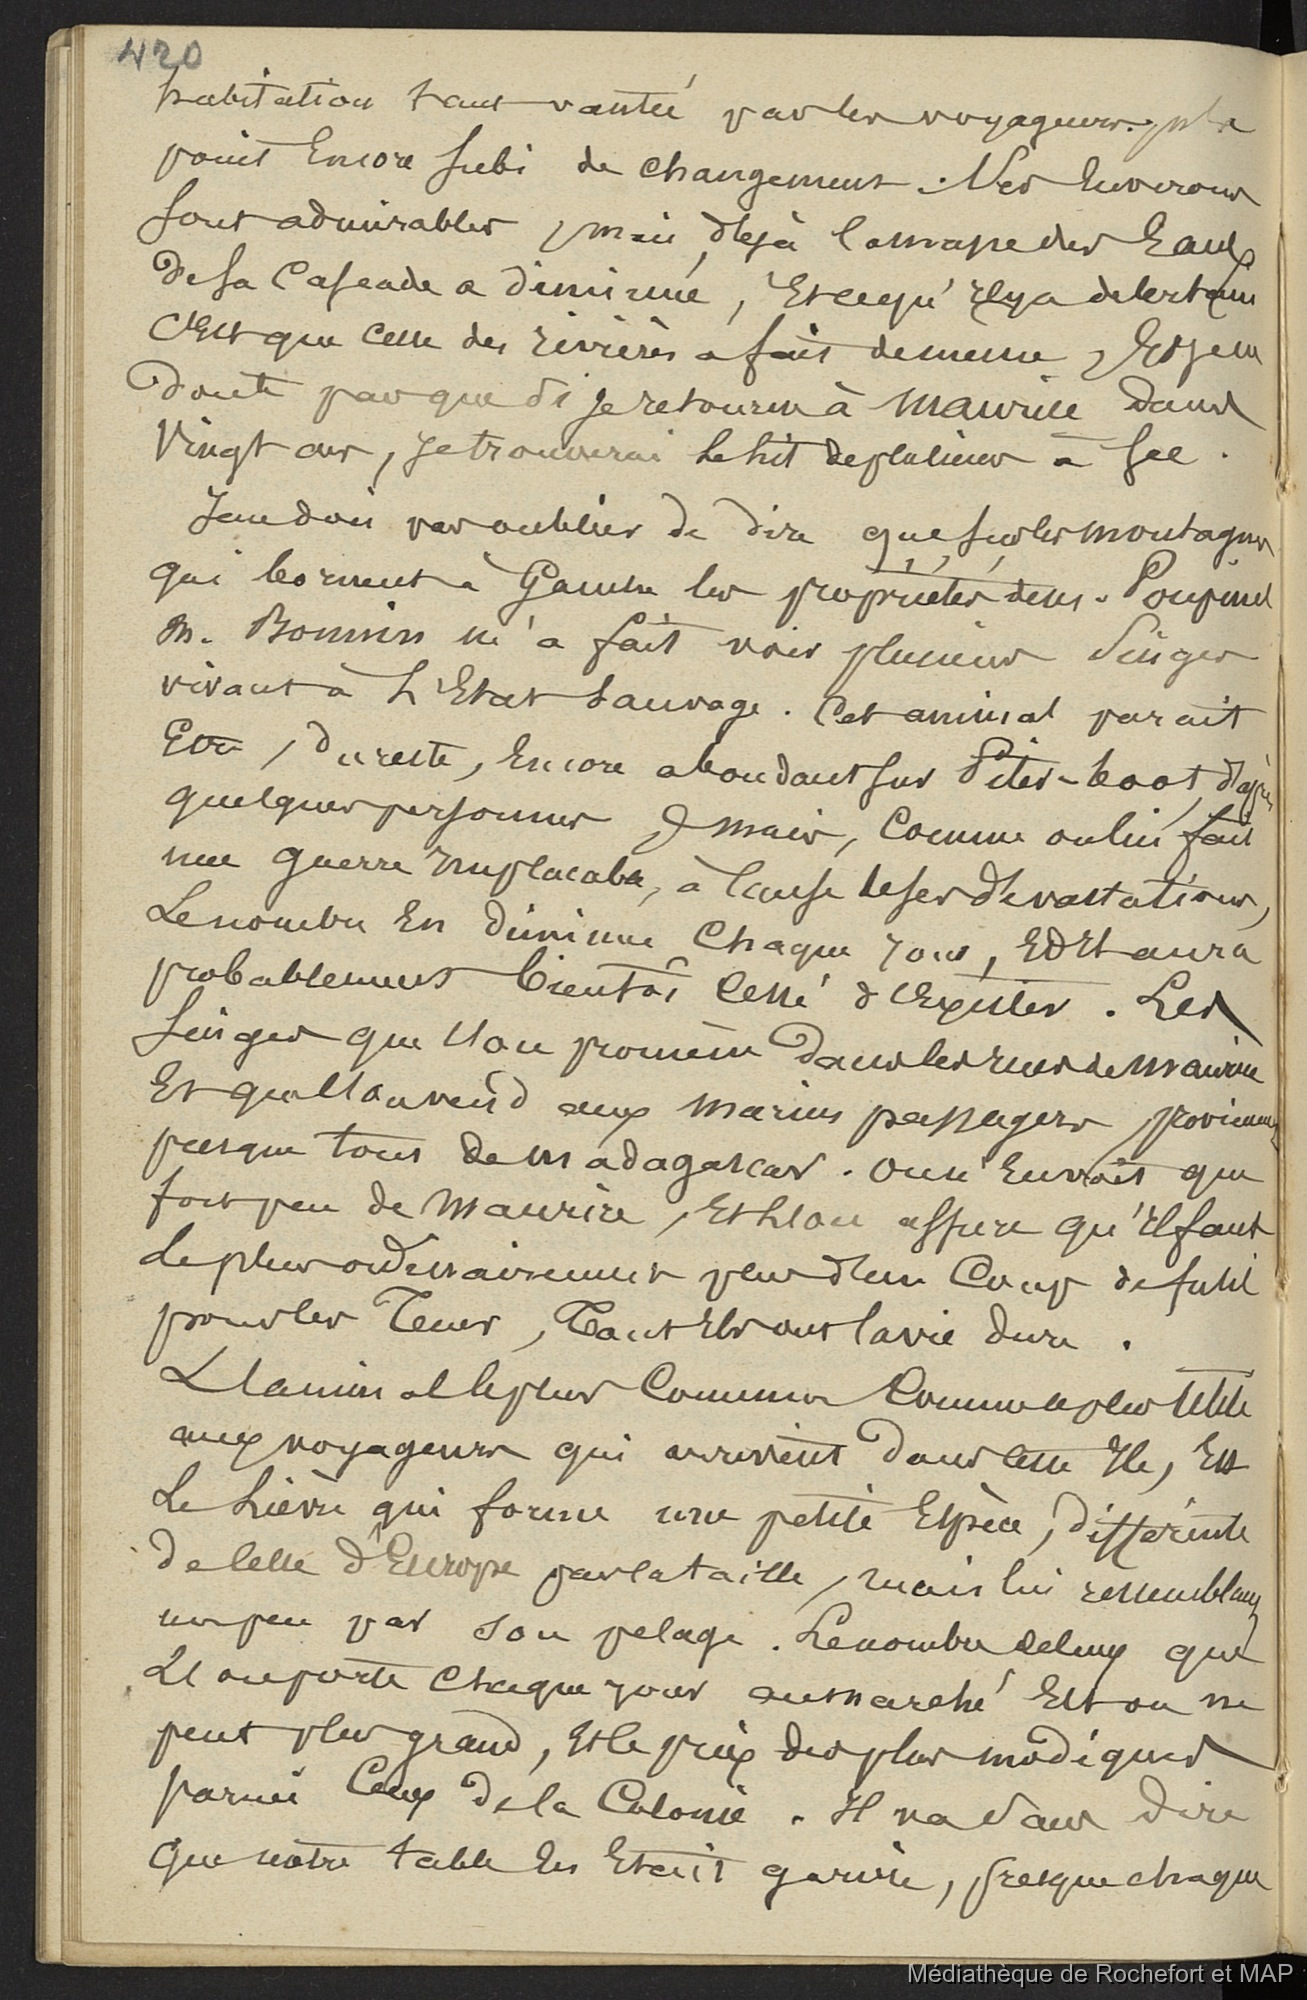 420
habitation tant vantée par les voyageurs, n'a
point Encore subi de changement. Ses Environs
sont admirables, mais, déjà la masse des Eaux
de sa Cascade a diminué, Et ce qu'il y a de certain
C'Est que Celle des rivières a fait de meme, Et je ne
Doute pas que si je retourne à Maurice Dans
Vingt ans, je trouverai le lit de plusieurs à sec.
Je ne dois pas oublier de dire que sur les montagnes
qui bornent à Gauche les propriétés de M. Poupinel
M. Bonnin m'a fait voir plusieurs Singes
vivant à L'Etat Sauvage. Cet animal parait
Etre, du reste, Encore abondant sur Piter-boot, d'après
quelques personnes, mais, Comme on lui fait
une guerre implacable, à Cause de ses dévastations,
Le nombre En diminue Chaque jour, Et Il aura
probablement bientôt Cessé d'Exister. Les
Singes que l'on promène Dans les rues de Maurice
Et que l'on vend aux marins passagers proviennent
presque tous de Madagascar. On n'En voit que
fort peu de Maurice, Et l'on assure qu'il faut
le plus ordinairement plus d'un Coup de fusil
pour les Tuer, Tant Ils ont la vie dure.
L'animal le plus Commun Comme le plus Utile
aux voyageurs qui arrivent Dans Cette Ile, Est
Le Lièvre qui forme une petite Espèce, différente
de Celle d'Europe par la taille, mais lui ressemblant
un peu par son pelage. Le nombre de Ceux que
L'on porte Chaque jour au marché Est on ne
peut plus grand, Et le prix des plus modiques
parmi Ceux de la Colonie. Il va sans dire
Que notre table En Etait garnie, presque chaque
Médiathèque de Rochefort et MAP